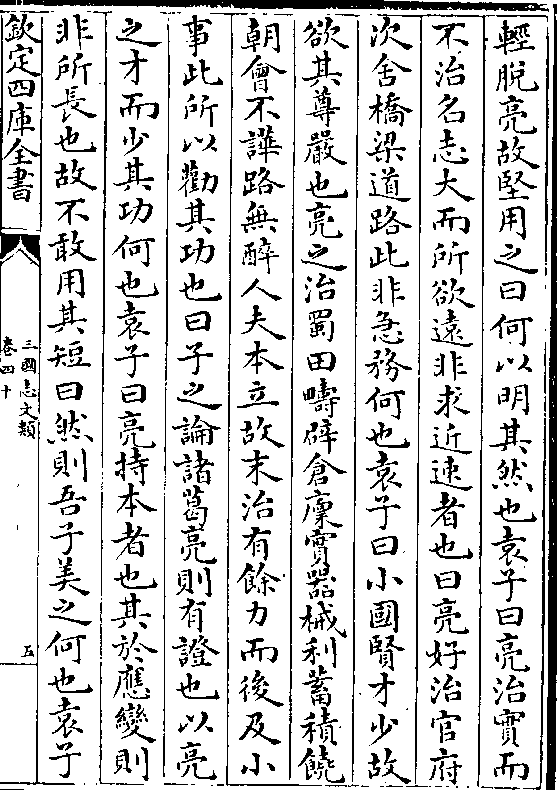 輕脱亮故堅用之曰何以明其然也袁子曰亮治實而
不治名志大而所欲遠非求近速者也曰亮好治官府
次舍橋梁道路此非急務何也袁子曰小國賢才少故
欲其尊嚴也亮之治蜀田疇辟倉廩實器械利蓄積饒
朝會不譁路無醉人夫本立故末治有餘力而後及小
事此所以勸其功也曰子之論諸葛亮則有證也以亮
之才而少其功何也袁子曰亮持本者也其於應變則
非所長也故不敢用其短曰然則吾子美之何也袁子
欽定四庫全書
三國志文類
卷四十
五